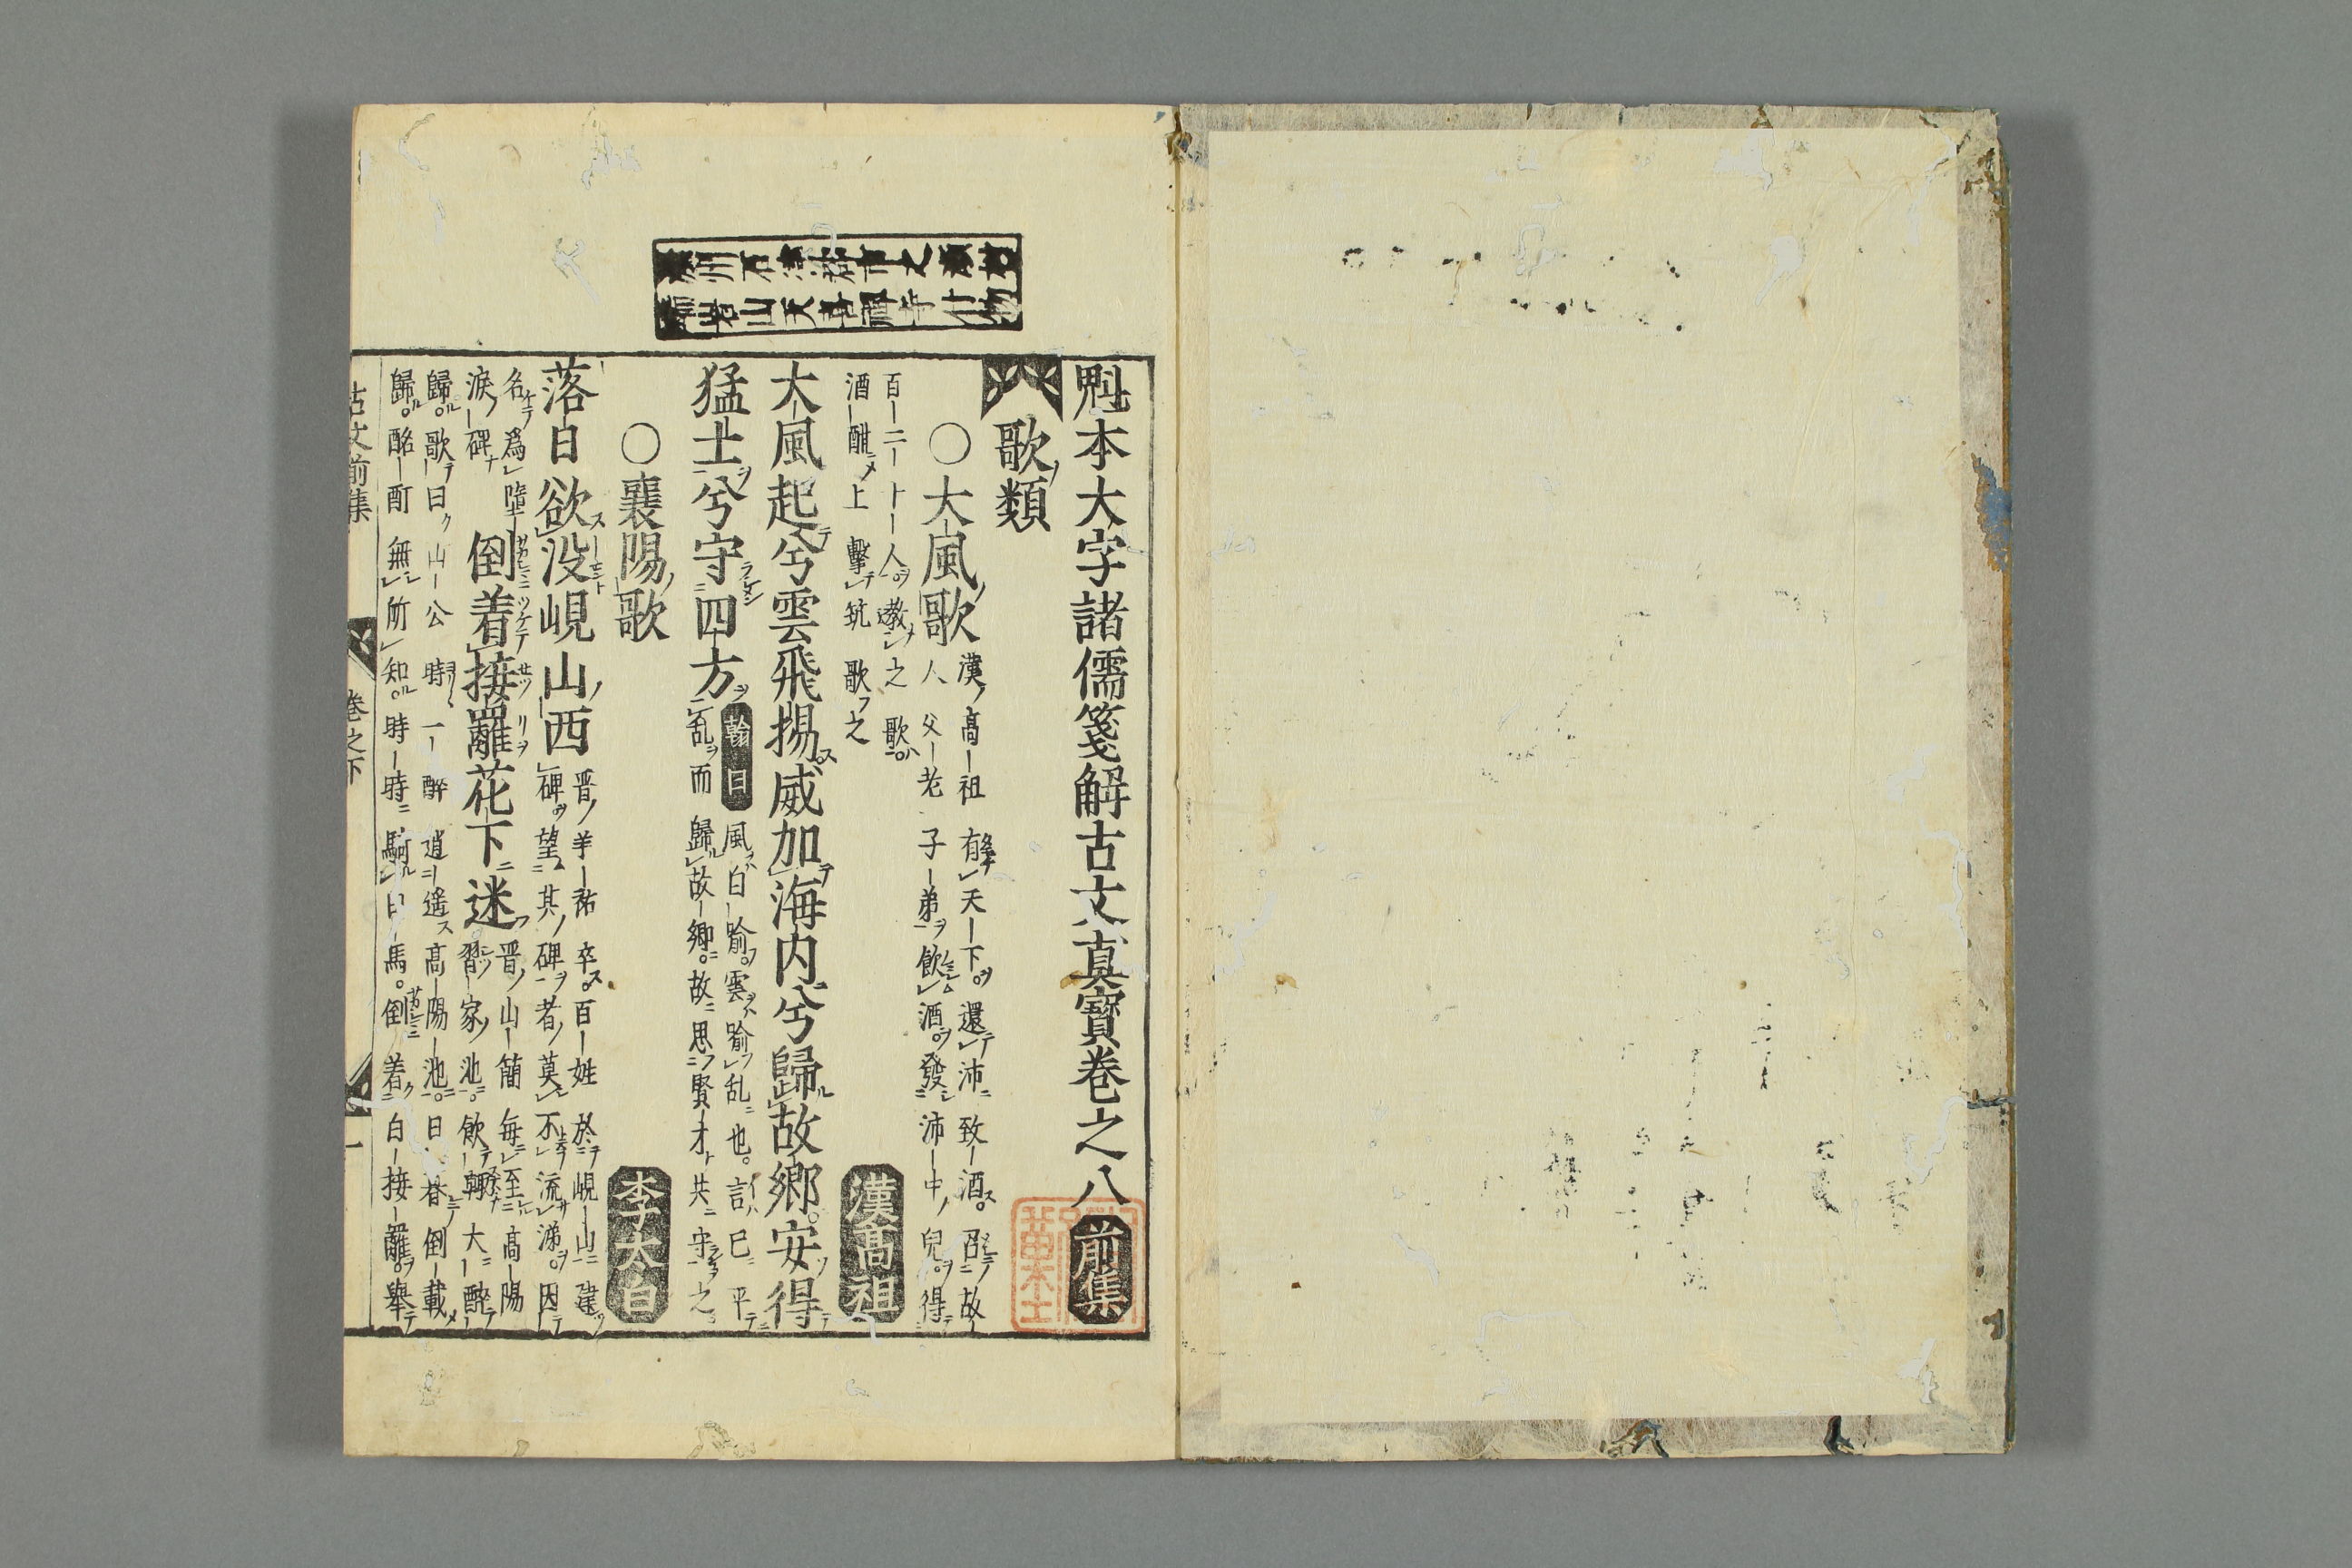 魁本大字諸儒箋解古文真寶卷之八 前集
歌類
○大風歌 漢高祖有天下還沛致酒召故
人父老子弟飲酒發沛中兒得
百二十人教之歌
酒酣上擊筑歌之 漢高祖
大風起兮雲飛揚威加海内兮歸故鄉安得
猛士兮守四方 翰曰 風自喻雲喻乱也言已平
乱而歸故鄉故思賢才共守之
○襄陽歌 李太白
落日欲没峴山西 晋羊祐卒百姓於峴山建
碑望其碑者莫不流涕因
名爲墮
淚碑
倒着接䍦花下迷 晋山簡每至高陽
習家池飲輙大醉
歸歌曰山公時一醉逍遥高陽池日暮倒載
歸酩酊無所知時時騎白馬倒着白接䍦舉
古文前集 卷之下 一